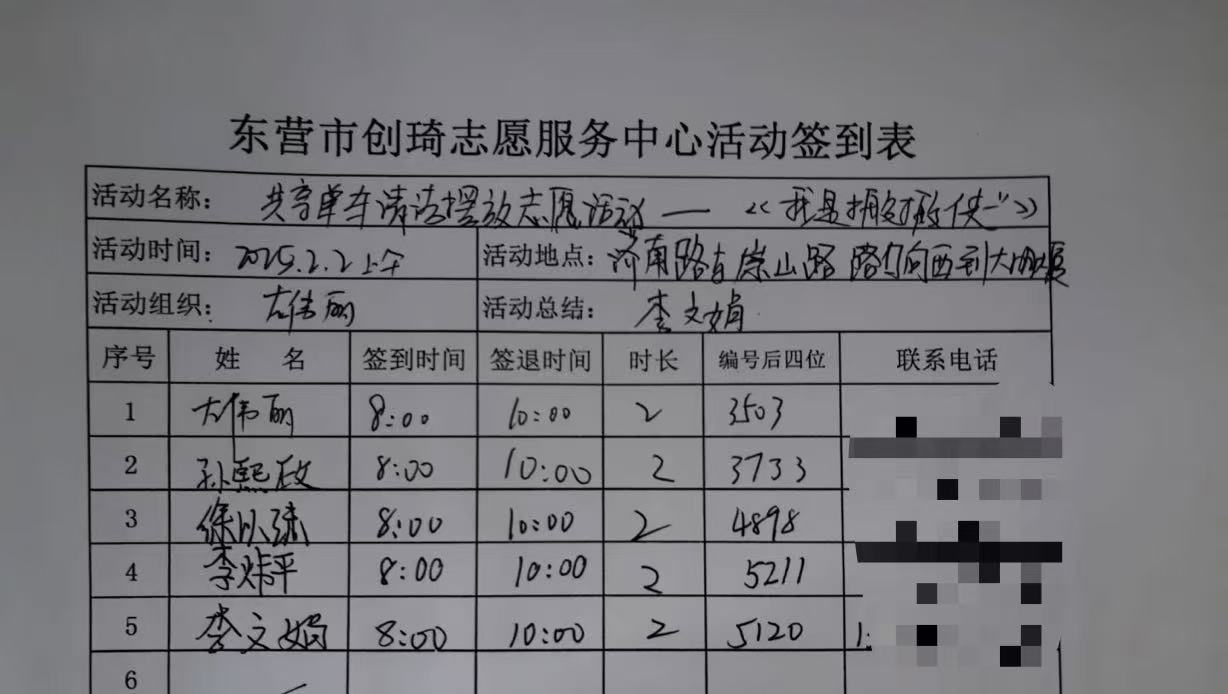 东营市创琦志愿服务中心活动签到表
活动名称： 共享单车清洁摆放志愿活动 — 《我是
活动时间： 2025.2.2上午 活动地点： 济南路 崇山路 路 向西到大
活动组织： 左伟丽 活动总结： 李文娟
序号 姓 名 签到时间 签退时间 时长 编号后四位 联系电话
1 左伟丽 8:00 10:00 2 3503
2 孙熙 8:00 10:00 2 3733
3 徐 8:00 10:00 2 4898
4 李 平 8:00 10:00 2 5211
5 李文娟 8:00 10:00 2 5120 1
6